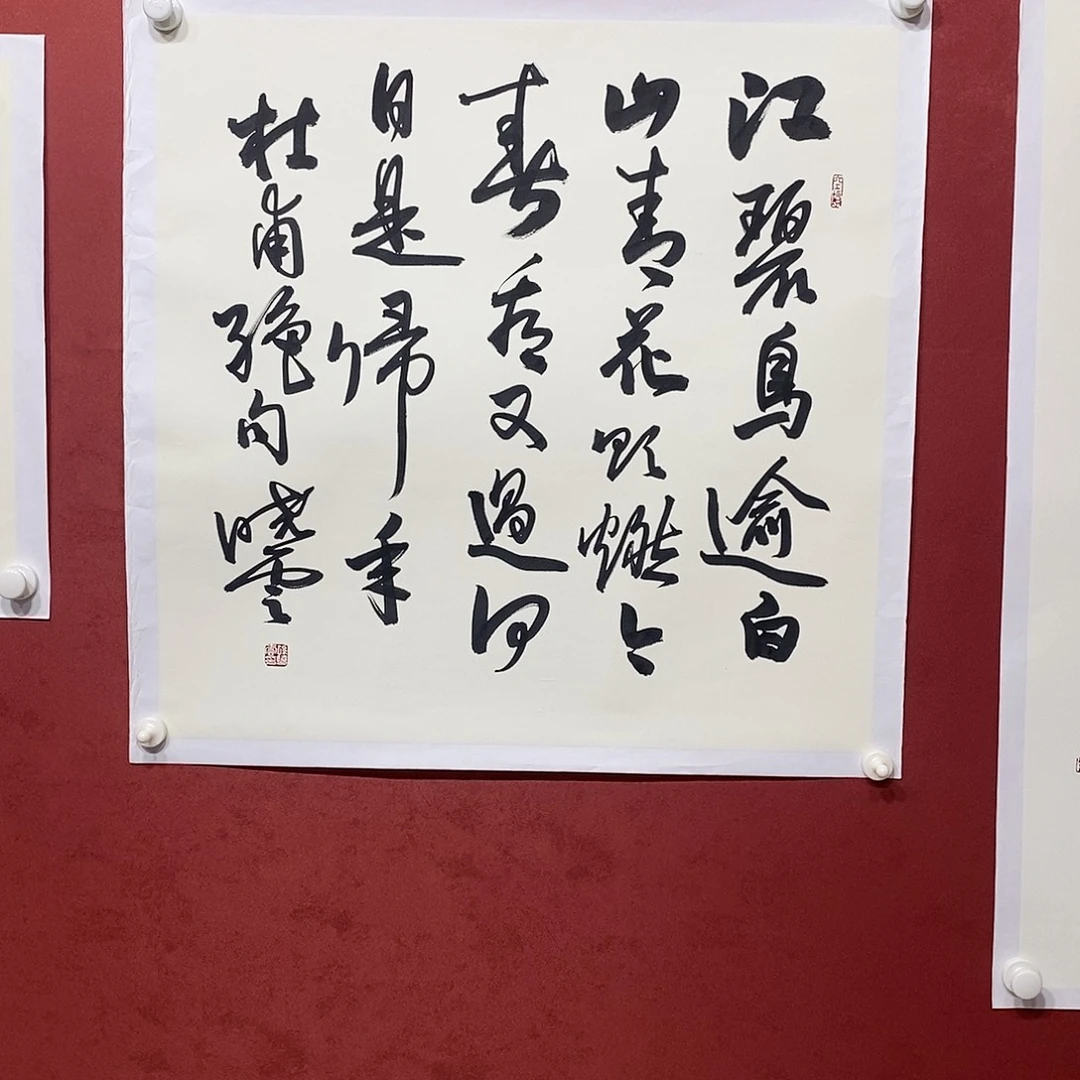 江碧鳥逾白
山青花欲燃今
春看又過何
日是帰年
杜甫绝句晓雲